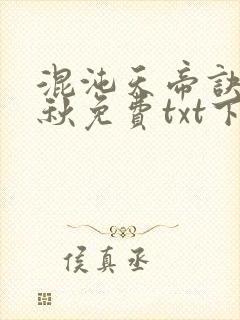 混沌天帝訣
秋免費txt下
侯真丞